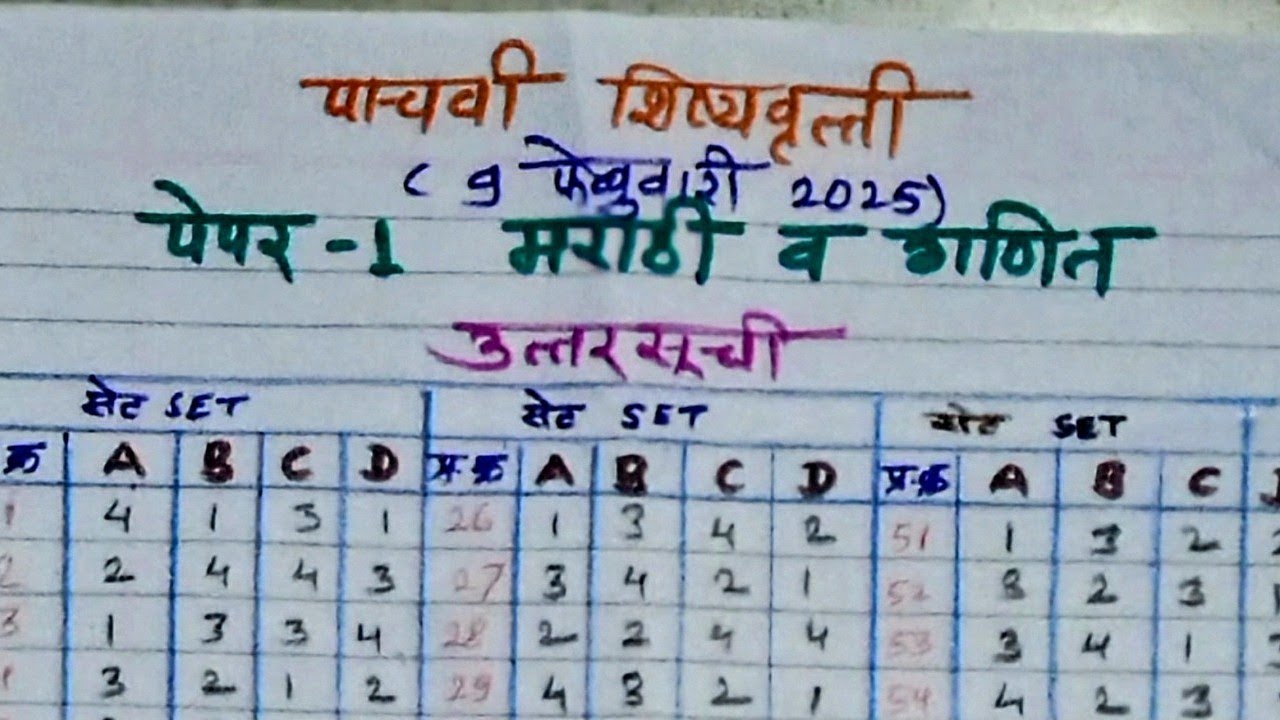 पाचवी शिष्यवृत्ती
( 9 फेब्रुवारी 2025)
पेपर -1 मराठी व गणित
उत्तरसूची
सेट SET सेट SET सेट SET
क्र A B C D प्र.क्र A B C D प्र.क्र A B C
1 4 1 3 1 26 1 3 4 2 51 1 3 2
2 2 4 4 3 27 3 4 2 1 52 3 2 3
3 1 3 3 4 28 2 2 4 4 53 3 4 1
3 2 1 2 29 4 3 2 1 54 4 2 3